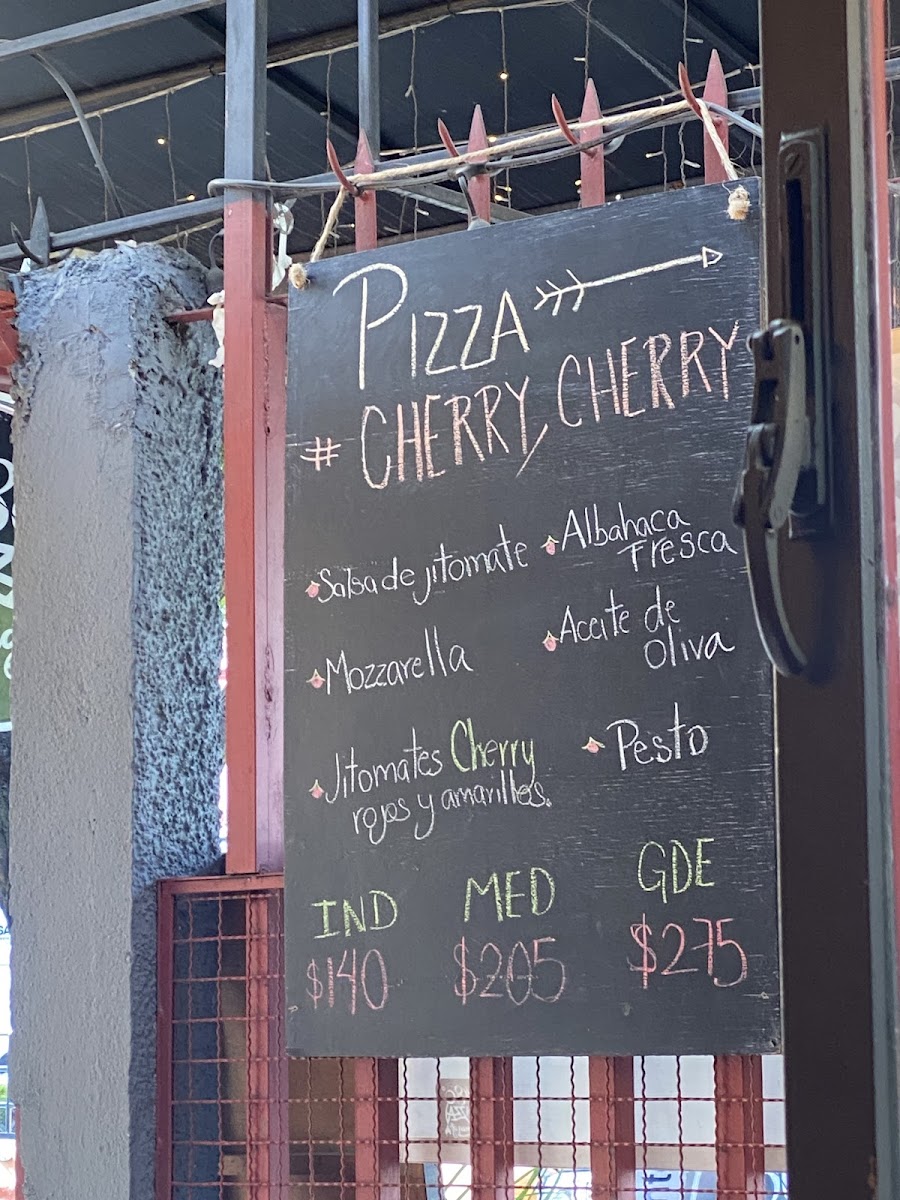 PIZZA
# CHERRY, CHERRY
Salsa de jitomate
Albahaca
Fresca
Mozzarella
Aceite de
oliva
Jitomates Cherry
rojos y amarillos.
Pesto
IND MED GDE
$140 $205 $275